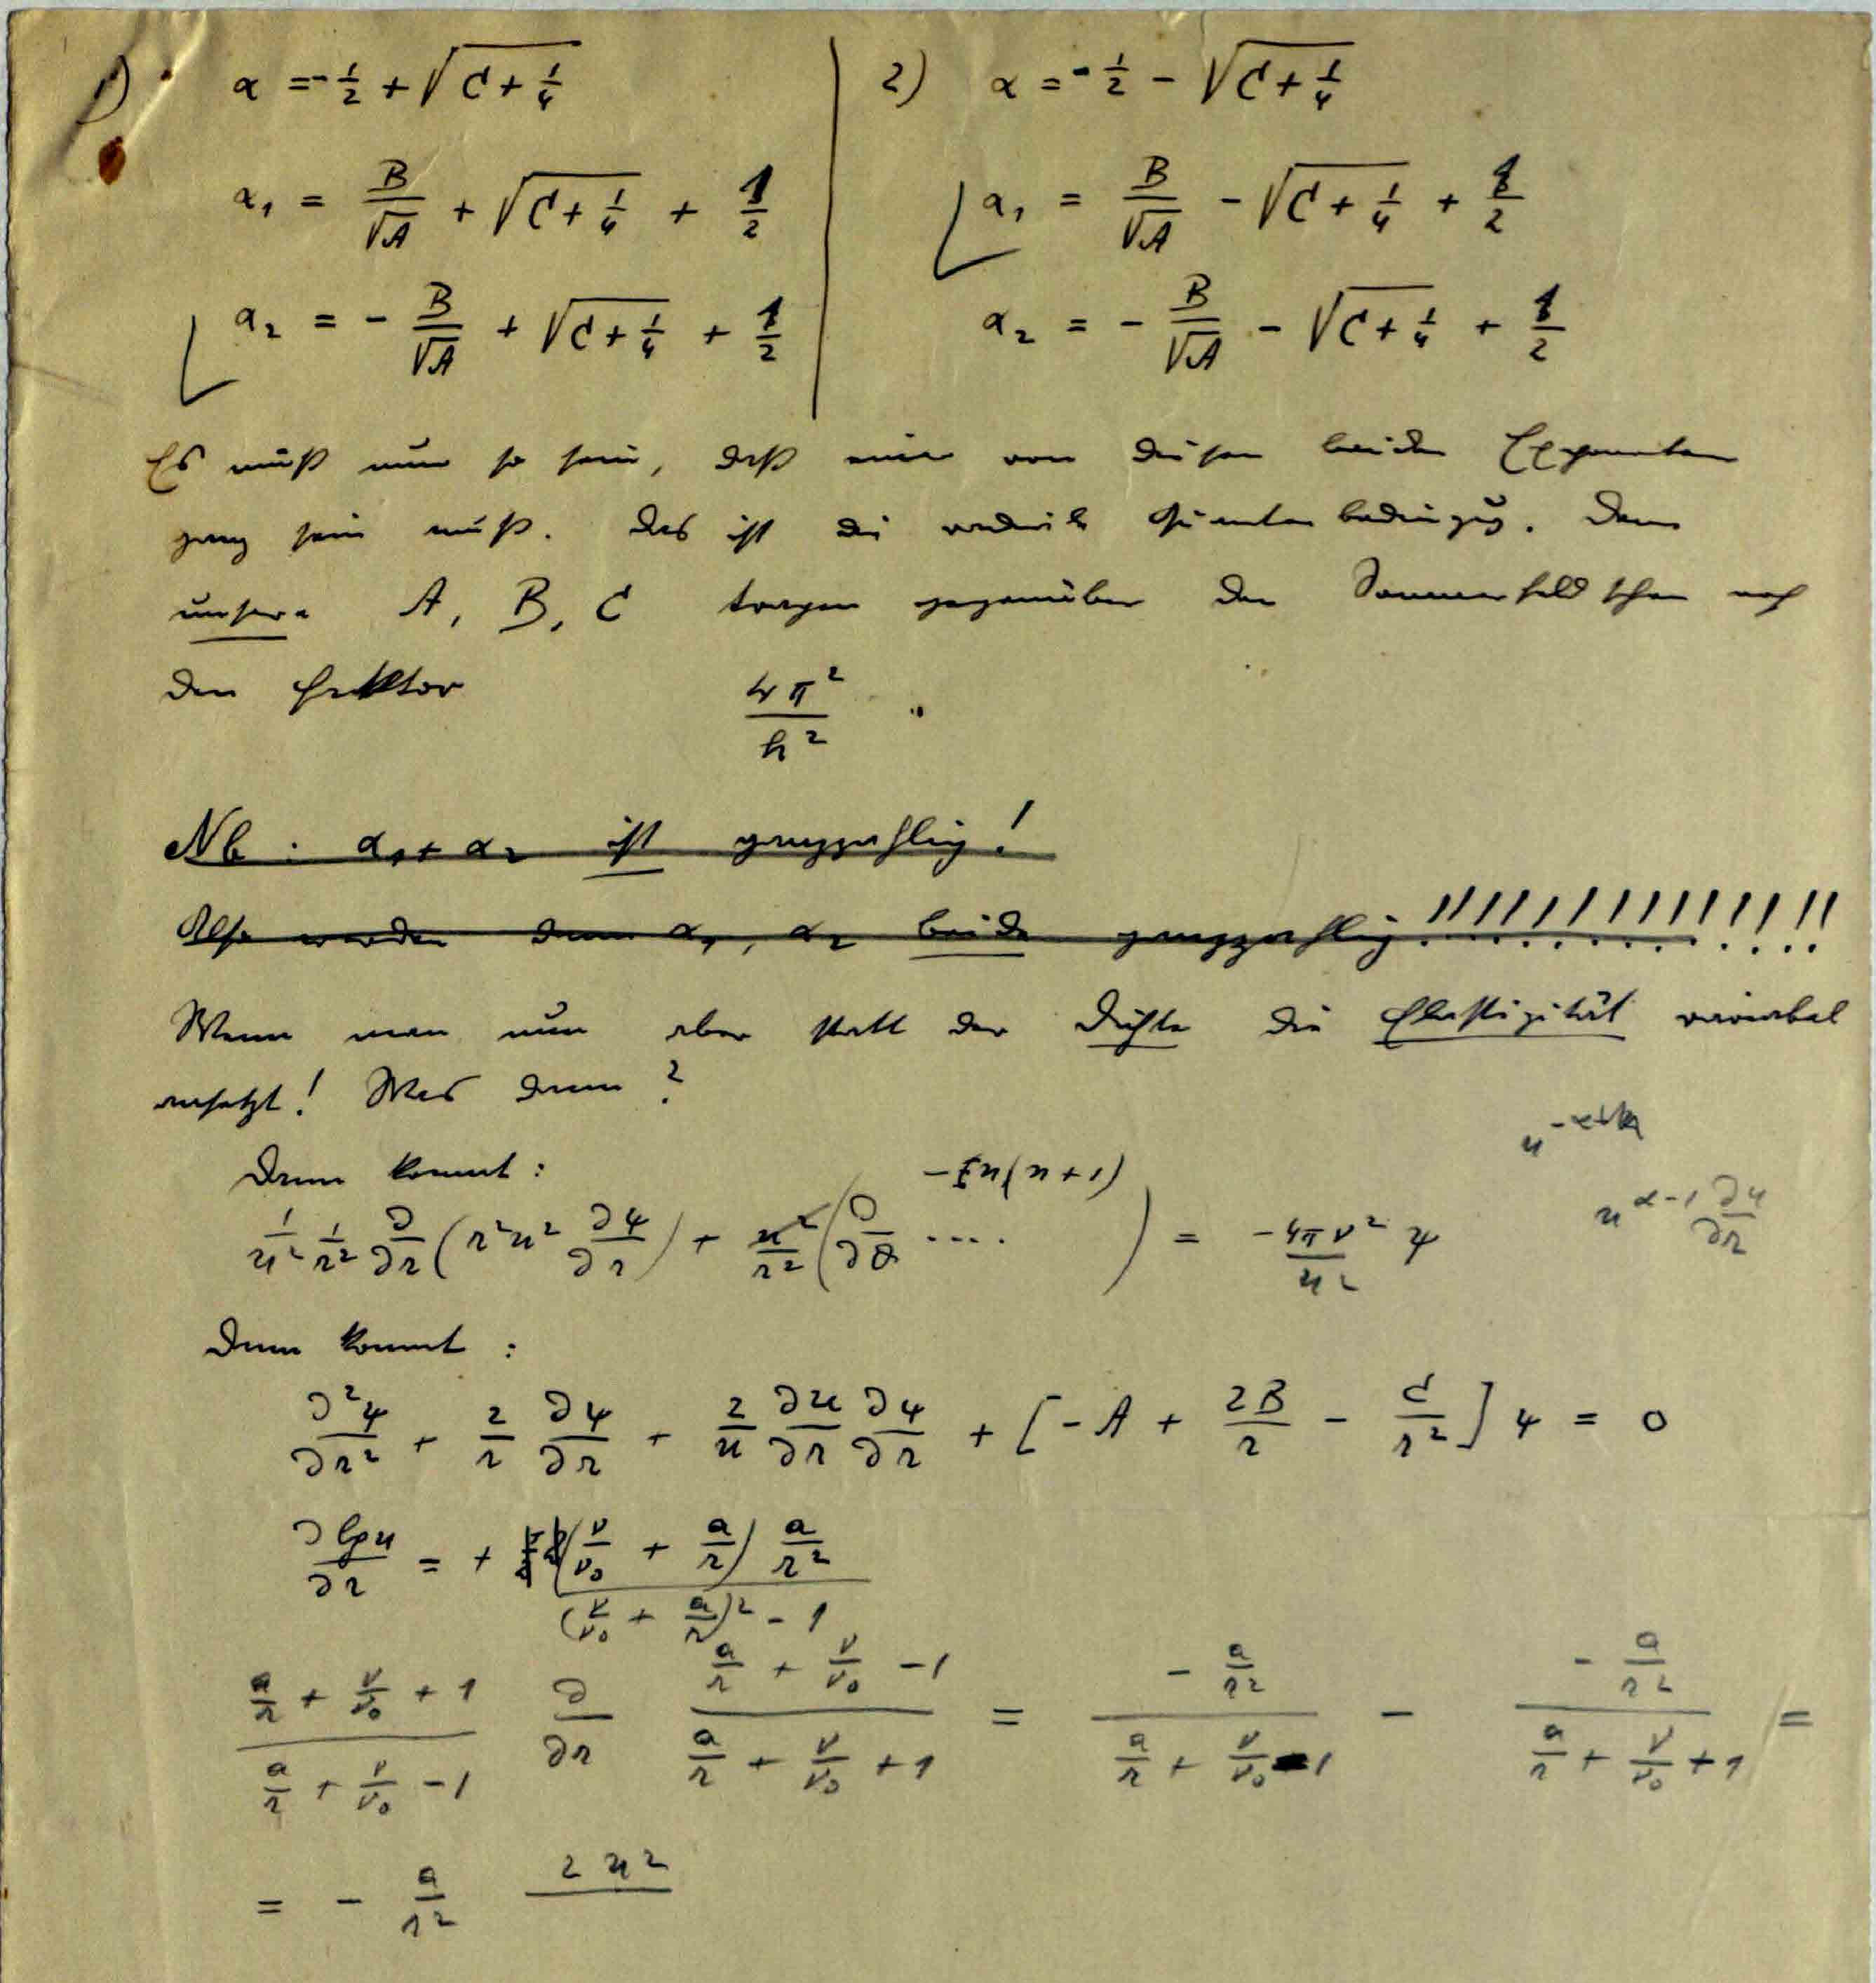 1) α = -1/2 + √(C + 1/4)
α₁ = B/√A + √(C + 1/4) + 1/2
α₂ = - B/√A + √(C + 1/4) + 1/2
2) α = -1/2 - √(C + 1/4)
α₁ = B/√A - √(C + 1/4) + 1/2
α₂ = - B/√A - √(C + 1/4) + 1/2
Es muß nun so sein, daß einer von diesen beiden Exponenten
ganz sein muß. Das ist die radiale Quantenbedingung. Denn
unsere A, B, C tragen gegenüber den Sommerfeldschen noch
den Faktor 4π²/h² .
Nb : α₁ + α₂ ist ganzzahlig!
Also werden dann α₁, α₂ beide ganzzahlig !!!!!!!!!!!!!!
Wenn man nun aber statt der Dichte die Elastizität variabel
ansetzt! Was dann?
u^
Dann kommt: - n(n+1)
1/u² 1/r² ∂/∂r (r²u² ∂ψ/∂r) + u²/r² (∂/∂θ .... ) = -4πν²/u² ψ
u^(α-1) ∂ψ/∂r
Dann kommt :
∂²ψ/∂r² + 2/r ∂ψ/∂r + 2/u ∂u/∂r ∂ψ/∂r + [-A + 2B/r - C/r²] ψ = 0
∂lgu/∂r = + (ν/ν₀ + a/r) a/r² / ((ν/ν₀ + a/r)² - 1)
(a/r + ν/ν₀ + 1)/(a/r + ν/ν₀ - 1) ∂/∂r (a/r + ν/ν₀ - 1)/(a/r + ν/ν₀ + 1) = (- a/r²)/(a/r + ν/ν₀ - 1) - (- a/r²)/(a/r + ν/ν₀ + 1) =
= - a/r² 2u²/